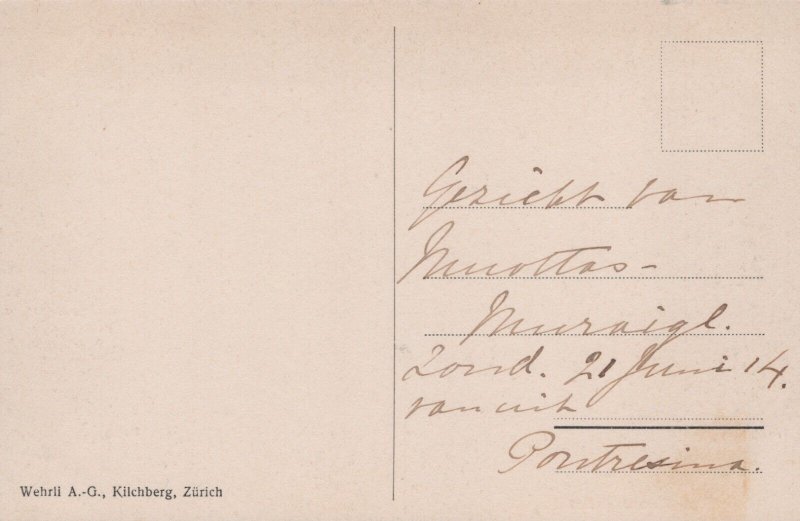 Gezicht van
Muottas-
Muraigl.
Zond. 21 Juni 14.
vanuit
Pontresina.
Wehrli A.-G., Kilchberg, Zürich